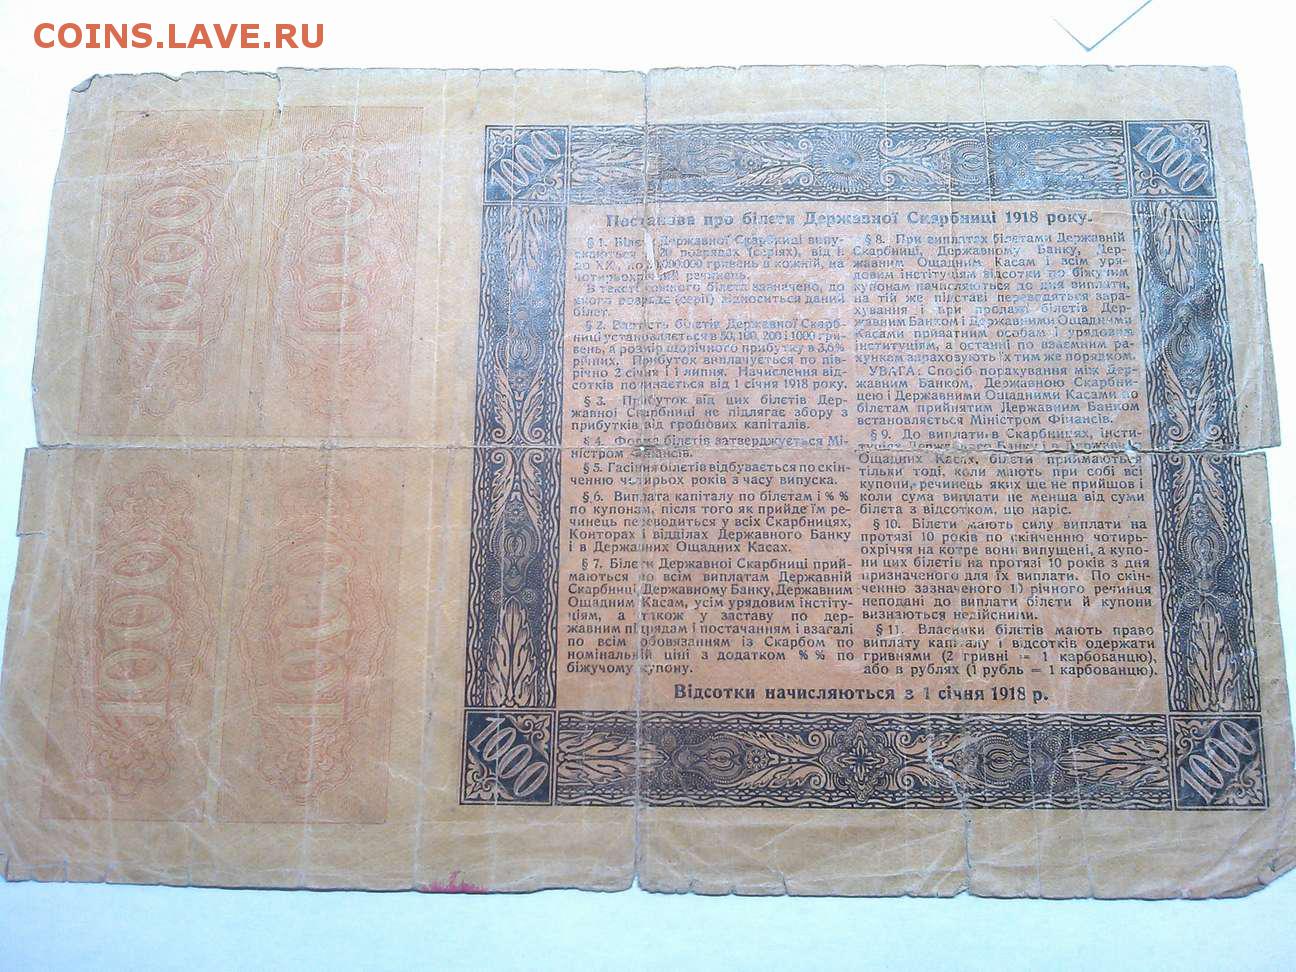 COINS.LAVE.RU
1000 1000
1000 1000
1000 1000
Постанова про білети Державної Скарбниці 1918 року.
§ 1. Білети Державної Скарбниці випу-
скаються в 20 розрядах (серіях), від І
до ХХ, по гривень в кожній, на
чотирьохрічний речинець.
В тексті кожного білета зазначено, до
якого розряда (серії) відноситься даний
білет.
§ 2. Вартість білетів Державної Скарб-
ниці установляється в 50, 100, 200 і 1000 гри-
вень, а розмір щорічного прибутку в 3,6%
річних. Прибуток виплачується по пів-
річно 2 січня і 1 липня. Начислення від-
сотків починається від 1 січня 1918 року.
§ 3. Прибуток від цих білетів Дер-
жавної Скарбниці не підлягає збору з
прибутків від грошових капіталів.
§ 4. Форма білетів затверджується Мі-
ністром Фінансів.
§ 5. Гасіння білетів відбувається по скін-
ченню чотирьох років з часу випуска.
§ 6. Виплата капіталу по білетам і % %
по купонам, після того як прийде їм ре-
чинець переводиться у всіх Скарбницях,
Конторах і відділах Державного Банку
і в Державних Ощадних Касах.
§ 7. Білети Державної Скарбниці прий-
маються по всім виплатам Державній
Скарбниці, Державному Банку, Державним
Ощадним Касам, усім урядовим інститу-
ціям, а також у заставу по дер-
жавним підрядам і постачанням і взагалі
по всім обовязанням із Скарбом по
номінальній ціні з додатком % % по
біжучому купону.
§ 8. При виплатах білетами Державній
Скарбниці, Державному Банку, Дер-
жавним Ощадним Касам і всім уря-
довим інституціям відсотки по біжучим
купонам начисляються до дня виплати,
на тій же підставі переводяться зара-
хування і при продажі білетів Дер-
жавним Банком і Державними Ощадними
Касами приватним особам і урядовим
інституціям, а останні по взаємним ра-
хункам зараховують їх тим же порядком.
УВАГА: Спосіб порахування між Дер-
жавним Банком, Державною Скарбни-
цею і Державними Ощадними Касами по
білетам прийнятим Державним Банком
встановляється Міністром Фінансів.
§ 9. До виплати в Скарбницях, інсти-
туціях Державного Банку і в Державних
Ощадних Касах, білети приймаються
тільки тоді, коли мають при собі всі
купони, речинець яких ще не прийшов і
коли сума виплати не менша від суми
білета з відсотком, що наріс.
§ 10. Білети мають силу виплати на
протязі 10 років по скінченню чотирь-
охріччя на котре вони випущені, а купо-
ни цих білетів на протязі 10 років з дня
призначеного для їх виплати. По скін-
ченню зазначеного 10 річного речинця
неподані до виплати білети й купони
визнаються недійсними.
§ 11. Власники білетів мають право
виплату капіталу і відсотків одержати
гривнями (2 гривні = 1 карбованцю),
або в рублях (1 рубль = 1 карбованцю).
Відсотки начисляються з 1 січня 1918 р.
1000 1000